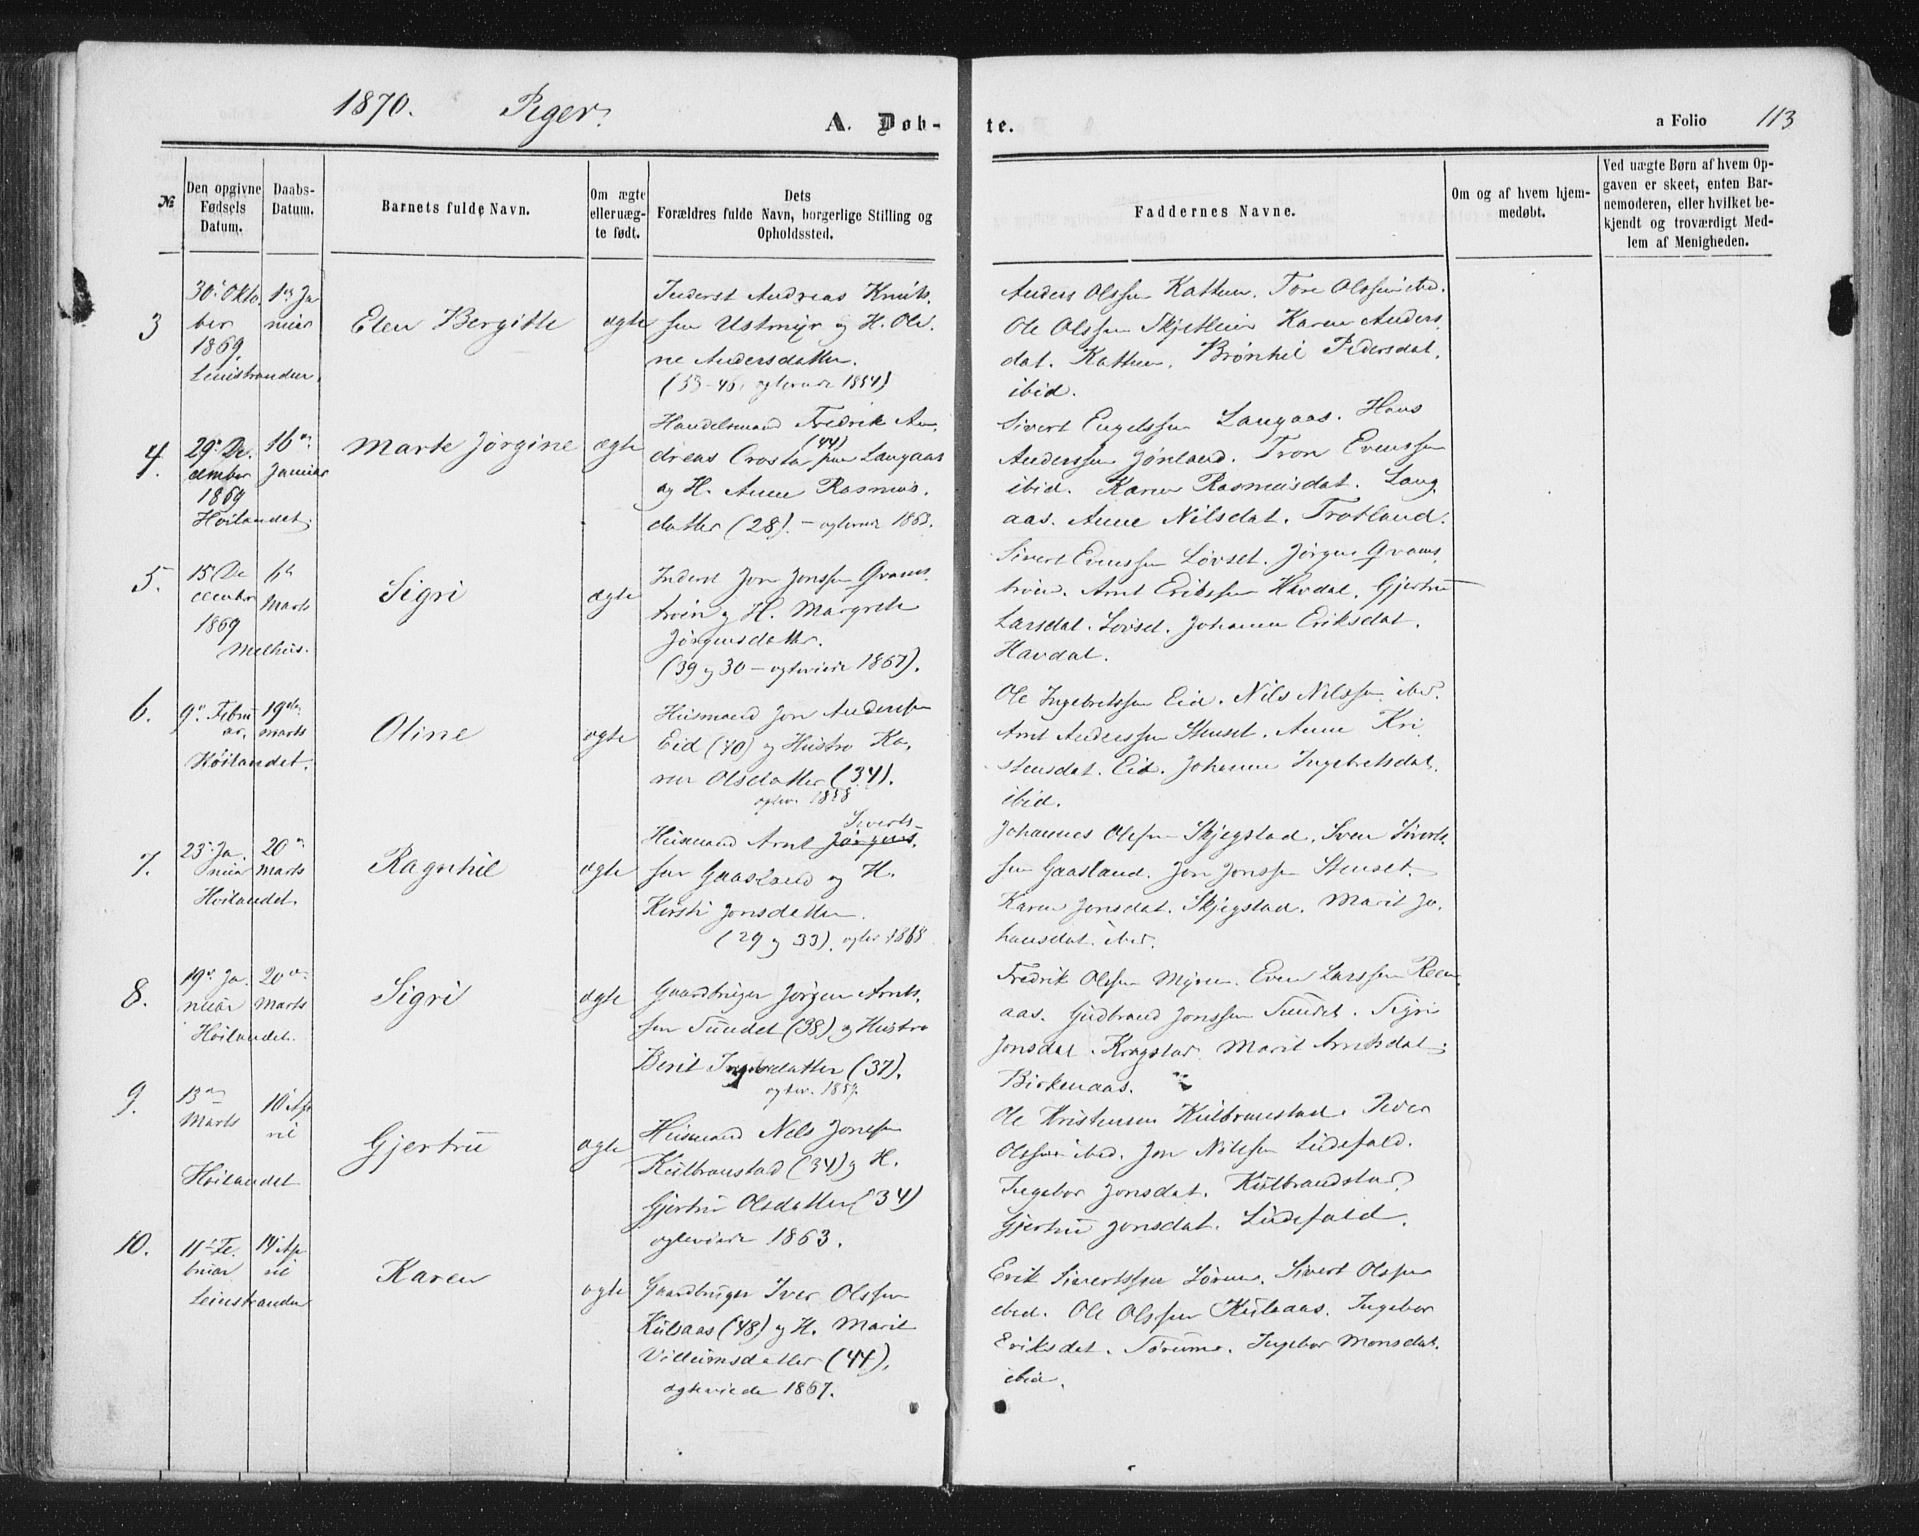 1870. Piger.
A. Døb-
te.
a Folio 113
№
Den opgivne Fødsels Datum.
Daabs-Datum.
Barnets fulde Navn.
Om ægte eller uæg-te født.
Dets Forældres fulde Navn, borgerlige Stilling og Opholdssted.
Faddernes Navne.
Om og af hvem hjem-medøbt.
Ved uægte Børn af hvem Op-gaven er skeet, enten Bar-nemoderen, eller hvilket be-kjendt og troværdigt Med-lem af Menigheden.
3
30' Okto
ber
1869,
Leinstranden.
1ste Ja
nuar
Elen Bergitte
ægte
Inderst Andreas Knuts.
sen Ustmyr og H. Ole.
ne Andersdatter.
(33-46, ægteviede 1854)
Anders Olssen Kathen. Tore Olssen ibd.
Ole Olssen Skjetlein Karen Anders
dat. Kathen. Brønhil Pedersdat.
ibid.
4.
29' De
cember
1869
Høilandet.
16de
Januar
Marte Jørgine
ægte
Handelsmand Fredrik An
dreas Crosta (44) paa Langaas
og H. Anne Rasmus.
datter (28). - ægteviede 1863.
Sivert Engelssen Langaas. Hans
Anderssen Jønland. Tron Evenssen
ibid. Karen Rasmusdat. Lang
aas. Anne Nilsdat. Trotland.
5.
15 De
cember
1869
Melhus.
6te
Marts
Sigri
ægte
Inderst Jon Jonssen Qvams
tröen og H. Margrete
Jørgensdatter.
(39 og 30 - ægteviede 1867).
Sivert Evenssen Løvset. Jørgen Qvams
tröen. Arnt Erikssen Havdal. Gjertru
Larsdat. Løvset. Johanna Eriksdat.
Havdal.
6.
9de Febru
ar.
Høilandet.
19de
Marts
Oline
ægte
Husmand Jon Anderssen
Eid (40) og Hustro Ka.
ren Olsdatter (34).
ægtev. 1858
Ole Ingebretssen Eid. Nils Nilssen ibd.
Arnt Anderssen Stenset. Anne Kri
stensdat. Eid. Johanna Ingebretsdat.
ibid.
7.
23' Ja.
nuar
Høilandet.
20de
Marts
Ragnhil
ægte
Siverts-
Husmand Arnt Jørgens.
sen Gaasland og H.
Kirsti Jonsdatter.
(29 og 33). ægtev 1868
Johannes Olssen Skjegstad. Sven Siverts
sen Gaasland. Jon Jonssen Stenset.
Karen Jonsdat. Skjegstad. Marit Jo.
hansdat. ibd.
8.
19de Ja
nuar
Høilandet.
20de
Marts
Sigri
ægte
Gaardbruger Jørgen Arnts.
sen Sundet (38) og Hustro
Berit Ingebrdatter (37).
ægtev. 1857.
Fredrik Olssen Myren. Even Larssen Reen
aas. Gudbrand Jonssen Sundet. Sigri
Jonsdat. Kregstad. Marit Arntsdat.
Birkenaas.
9.
13de
Marts
Høilandet
10 Ap
ril
Gjertru
ægte
Husmand Nels Jonssen
Kulbranstad (34) og H.
Gjertru Olsdatter (34)
ægteviede 1863.
Ole Kristensen Kulbranstad. Iver
Olssen ibd. Jon Nilssen Lidefald.
Ingebor Jonsdat. Kulbrandstad
Gjertru Jonsdat. Lidefald.
10.
11' Fe.
bruar
Leinstranden
14 Ap
ril
Karen
ægte
Gaardbruger Iver Olssen
Kulsaas (48) og H. Marit
Villumsdatter (44).
ægteviede 1867.
Erik Sivertssen Sørum. Sivert Olssen
ibid. Ole Olssen Kulsaas. Ingebor
Eriksdat. Sørum. Ingebor Monsdat.
ibid.